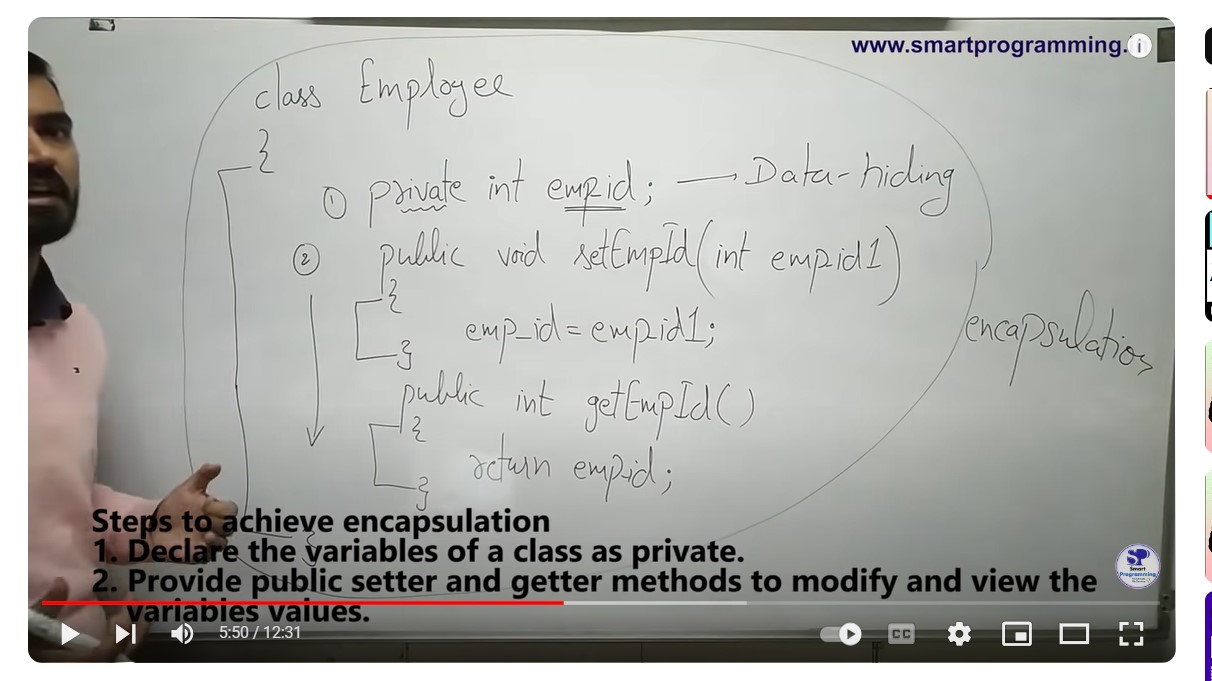 www.smartprogramming.
class Employee
{
① private int emp_id; — Data-hiding
② public void setEmpId(int emp_id1)
{
emp_id = emp_id1;
}
encapsulation
public int getEmpId()
{
return emp_id;
}
Steps to achieve encapsulation
1. Declare the variables of a class as private.
2. Provide public setter and getter methods to modify and view the
variables values.
SP
Smart
Programming
5:50 / 12:31
CC